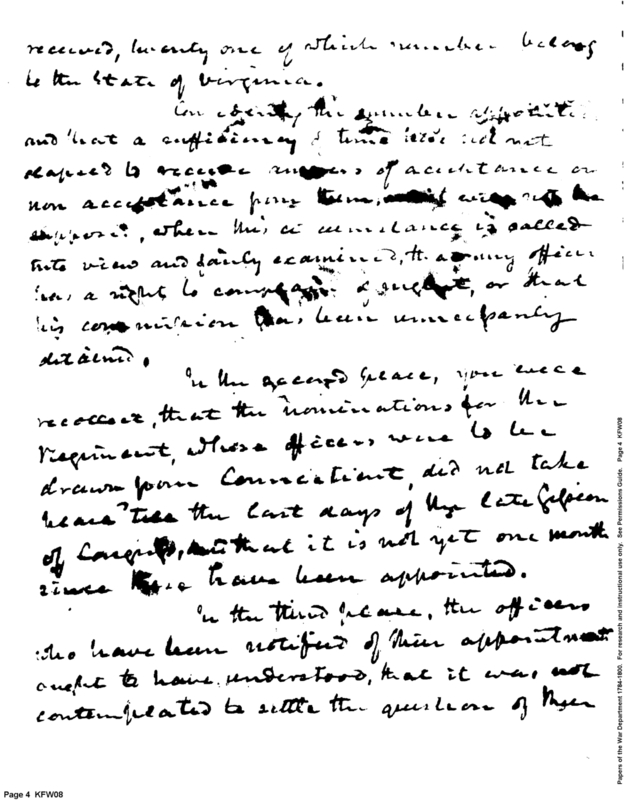 received, twenty one of which number belong
to the State of Virginia.
Considering the number appointed
and that a sufficiency of time has not
elapsed to receive answers of acceptance or
non acceptance from them, it will not be
supposed, when this circumstance is called
into view and fairly examined, that any officer
has a right to complain of neglect, or that
his commission has been unnecessarily
detained.
In the second place, you will
recollect, that the nominations for the
Regiment, whose officers were to be
drawn from Connecticut, did not take
place till the last days of the late Session
of Congress, and that it is not yet one month
since they have been appointed.
In the third place, the officers
who have been notified of their appointment
ought to have understood, that it was not
contemplated to settle the question of their
Page 4 KFW08
Papers of the War Department 1784-1800. For research and instructional use only. See Permissions Guide. Page 4 KFW08